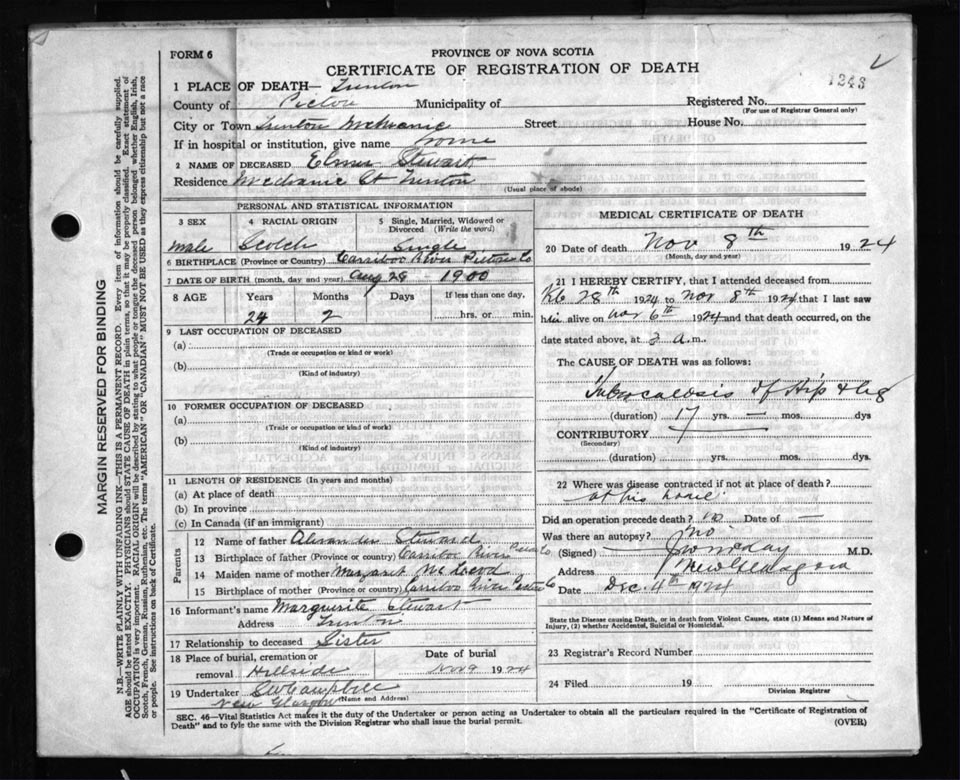 FORM 6
PROVINCE OF NOVA SCOTIA
CERTIFICATE OF REGISTRATION OF DEATH
1243
1 PLACE OF DEATH— Trenton
County of Pictou Municipality of
Registered No.
(For use of Registrar General only)
City or Town Trenton Mechanic Street House No.
If in hospital or institution, give name Home
2 NAME OF DECEASED Elmer Stewart
Residence Mechanic St Trenton
(Usual place of abode)
PERSONAL AND STATISTICAL INFORMATION
3 SEX
4 RACIAL ORIGIN
5 Single, Married, Widowed or Divorced (Write the word)
male Scotch Single
6 BIRTHPLACE (Province or Country) Carriboo River Pictou Co
7 DATE OF BIRTH (month, day and year) Aug 28 - 1900
8 AGE Years Months Days If less than one day,
24 2 hrs. or min.
9 LAST OCCUPATION OF DECEASED
(a)
(Trade or occupation or kind or work)
(b)
(Kind of industry)
10 FORMER OCCUPATION OF DECEASED
(a)
(Trade or occupation or kind or work)
(b)
(Kind of industry)
11 LENGTH OF RESIDENCE (In years and months)
(a) At place of death
(b) In province
(c) In Canada (if an immigrant)
Parents
12 Name of father Alexander Steward
13 Birthplace of father (Province or country) Carriboo River Pictou Co
14 Maiden name of mother Margaret McLeod
15 Birthplace of mother (Province or country) Carriboo River Pictou Co
16 Informant's name Marguerite Stewart
Address Trenton
17 Relationship to deceased Sister
18 Place of burial, cremation or removal Hillside
Date of burial
Nov 9 1924
19 Undertaker Campbell
New Glasgow (Name and Address)
MEDICAL CERTIFICATE OF DEATH
20 Date of death Nov 8th 1924
(Month, day and year)
21 I HEREBY CERTIFY, that I attended deceased from
28th 1924 to Nov 8th 1924 that I last saw
him alive on Nov 6th 1924 and that death occurred, on the
date stated above, at 3 a.m.
The CAUSE OF DEATH was as follows:
Tuberculosis of Hip & leg
(duration) 17 yrs. — mos. dys
CONTRIBUTORY
(Secondary)
(duration) yrs. mos. dys.
22 Where was disease contracted if not at place of death?
at his home
Did an operation precede death? no Date of —
Was there an autopsy? no
(Signed) M.D.
Address New Glasgow
Date Dec. 4th 1924
State the Disease causing Death, or in death from Violent Causes, state (1) Means and Nature of Injury, (2) whether Accidental, Suicidal or Homicidal.
23 Registrar's Record Number
24 Filed 19
Division Registrar
SEC. 46—Vital Statistics Act makes it the duty of the Undertaker or person acting as Undertaker to obtain all the particulars required in the "Certificate of Registration of
Death" and to fyle the same with the Division Registrar who shall issue the burial permit.
(OVER)
MARGIN RESERVED FOR BINDING
N.B.—WRITE PLAINLY WITH UNFADING INK—THIS IS A PERMANENT RECORD. Every item of information should be carefully supplied.
AGE should be stated EXACTLY. PHYSICIANS should STATE CAUSE OF DEATH in plain terms, so that it may be properly classified. Exact statement of
OCCUPATION is very important. RACIAL ORIGIN will be described by stating to what people or tongue the deceased person belonged whether English, Irish,
Scotch, French, German, Russian, Ruthenian, etc. The terms "AMERICAN" OR "CANADIAN" MUST NOT BE USED as they express citizenship but not a race
or people. See instructions on back of Certificate.